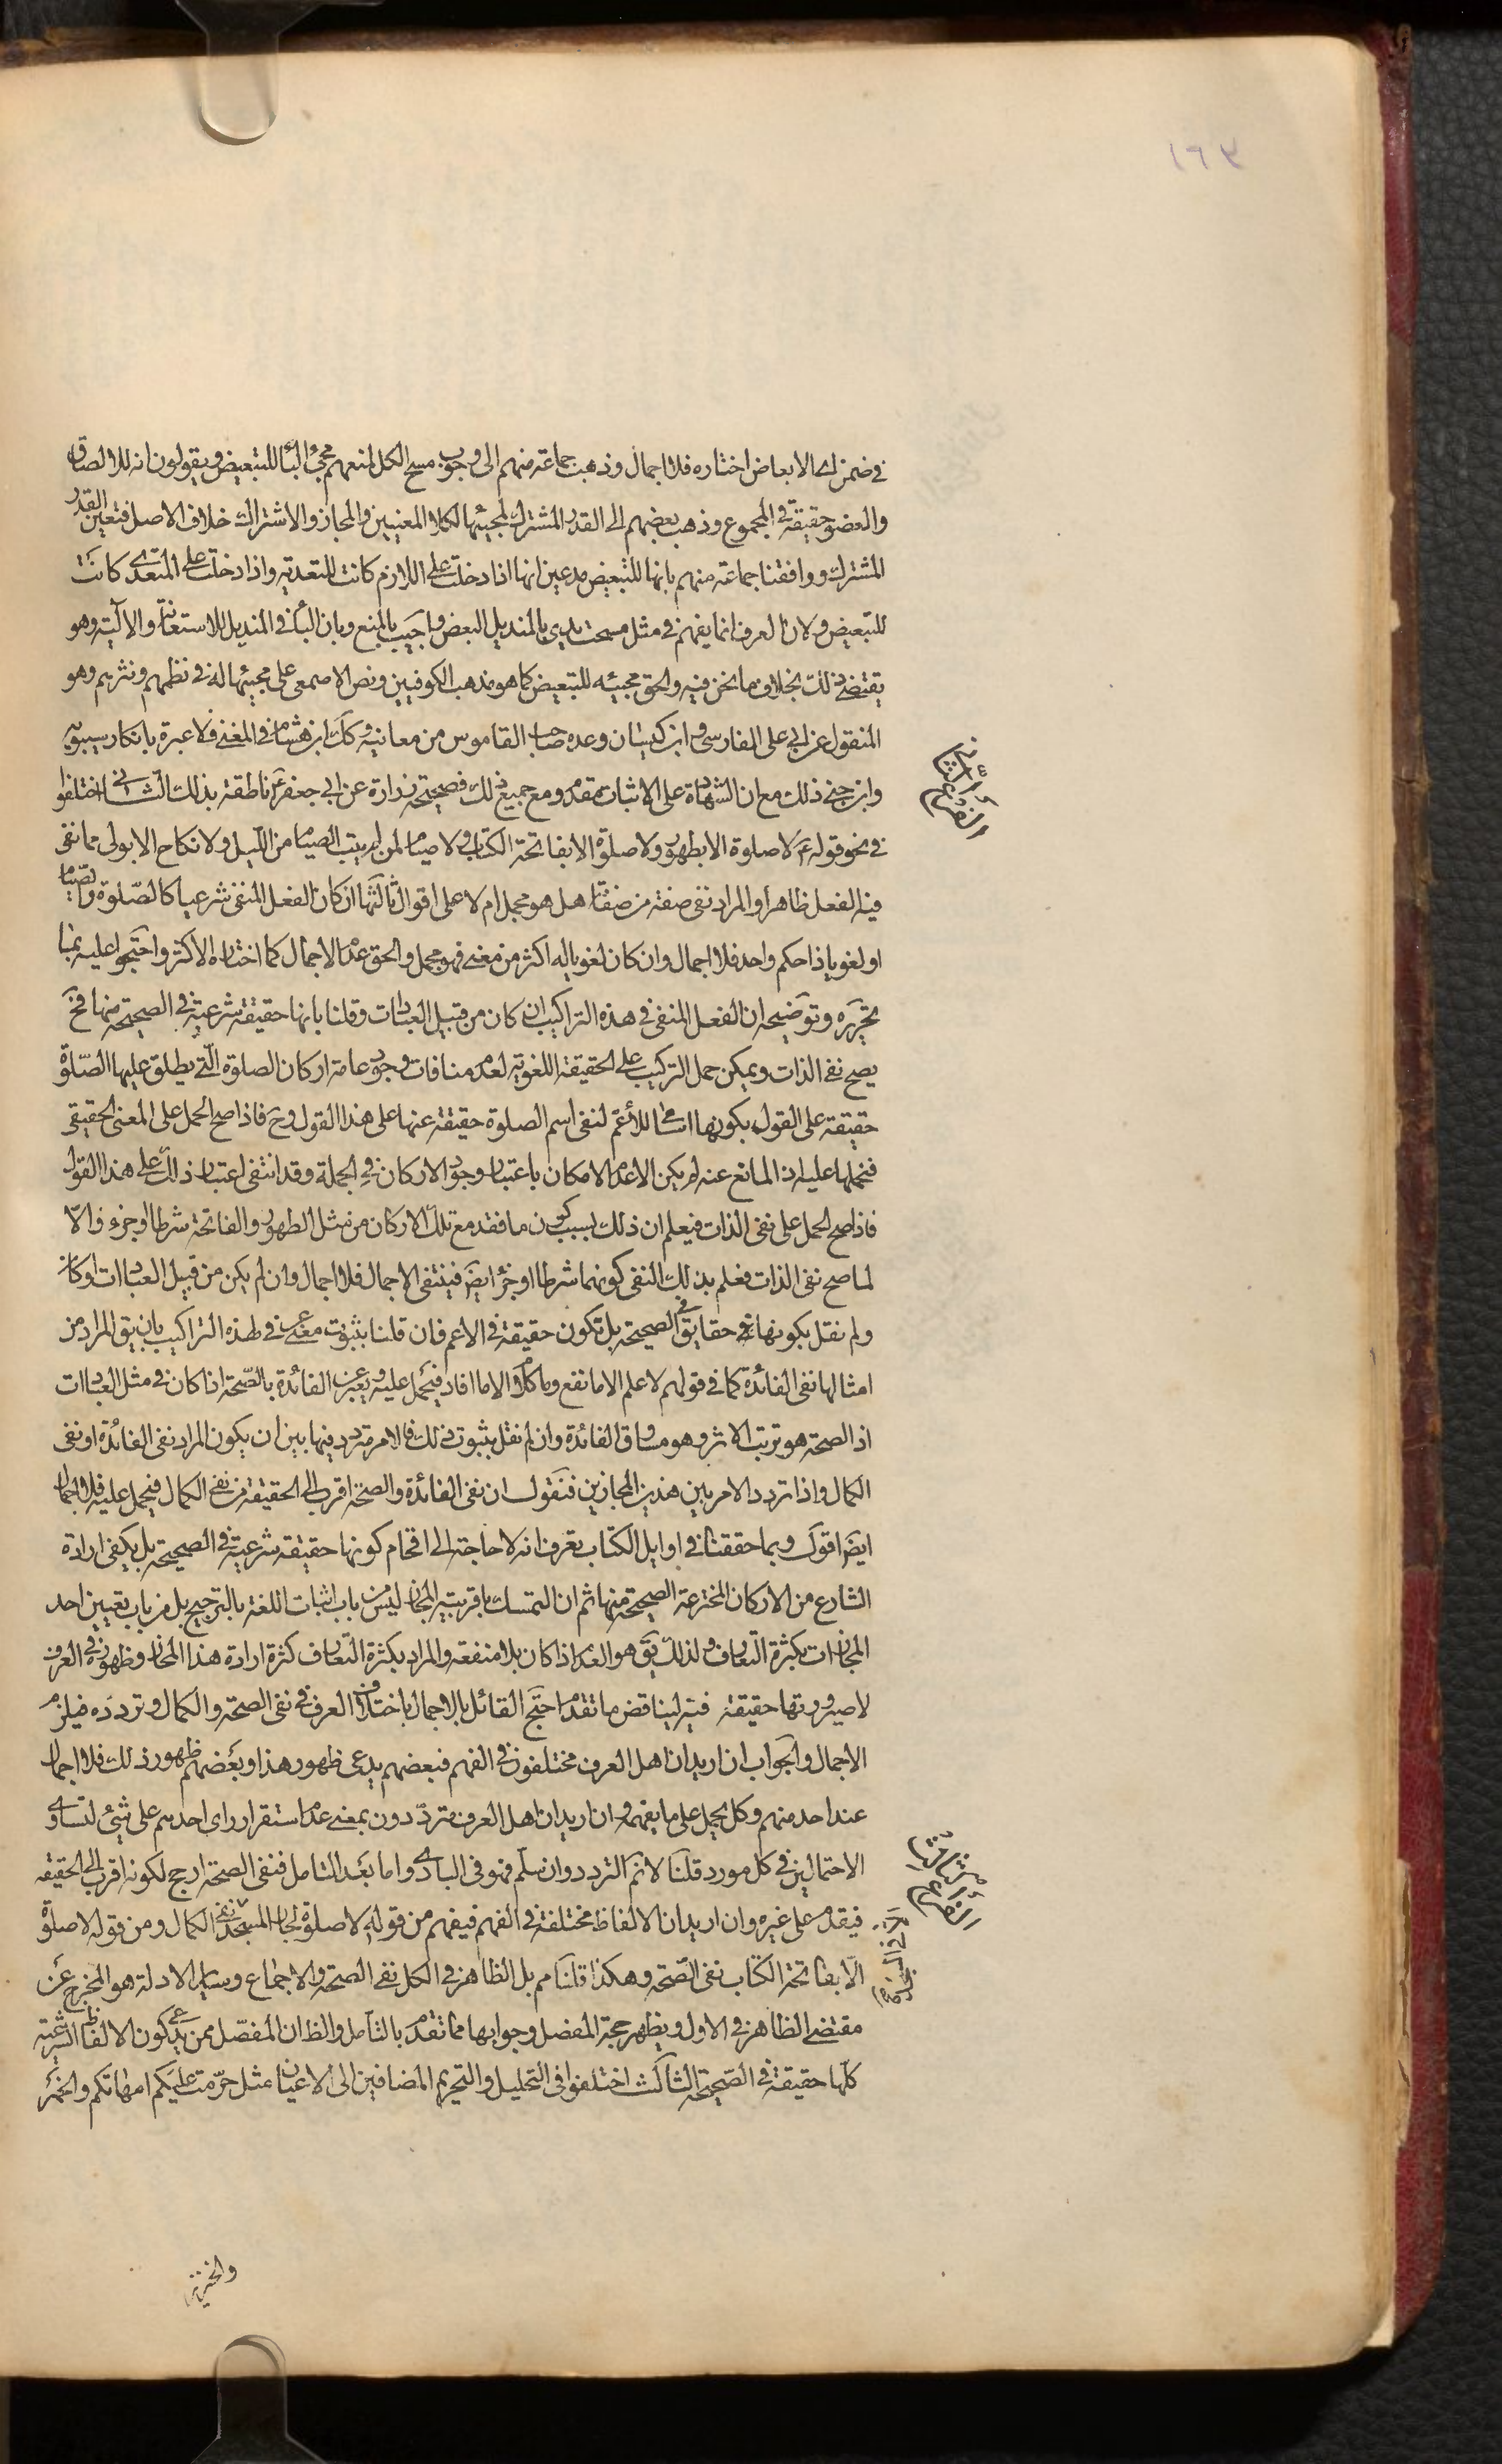 ١٩٣
في ضمن اى الابعاض اختاره فلا اجمال وذهبت جماعة منهم الى وجوب مسح الكل لمنعهم مجئ الباء للتبعيض ويقولون انه للالصاق
والعضو حقيقة في المجموع وذهب بعضهم الى القدر المشترك لمجيئها لكلا المعنيين والمجاز والاشتراك خلاف الاصل فتعين القدر
المشترك ووافقنا جماعة منهم بانها للتبعيض مدعين انها اذا دخلت على اللازم كانت للتعدية واذا دخلت على المتعدى كانت
للتبعيض ولان العرف انما يفهم في مثل مسحت يدي بالمنديل البعض واجيب بالمنع وبان الباء في المنديل للاستعانة والالية وهو
يقتضي ذلك بخلاف ما نحن فيه والحق مجيئه للتبعيض كما هو مذهب الكوفيين ونص الاصمعى على مجيئها له في نظمهم ونثرهم وهو
المنقول عن ابي على الفارسى وابن كيسان وعده صاحب القاموس من معانيه وكك ابن هشام في المغنى فلا عبرة بانكار سيبويه
وابن جنى ذلك مع ان الشهادة على الاثبات مقدم ومع جميع ذلك فصحيحة زرارة عن ابي جعفر ع ناطقة بذلك الثاني اختلفوا
في نحو قوله ع لا صلوة الا بطهور ولا صلوة الا بفاتحة الكتاب ولا صيام لمن لم يبت الصيام من الليل ولا نكاح الا بولى مما نفى
فيه الفعل ظاهرا والمراد نفى صفة من صفاته هل هو مجمل ام لا على اقوال ثالثها ان كان الفعل المنفى شرعيا كالصلوة والصيام
او لغويا ذا حكم واحد فلا اجمال وان كان لغويا له اكثر من معنى فهو مجمل والحق عدم الاجمال كما اختاره الاكثر واحتجوا عليه بما
تحريره وتوضيحه ان الفعل المنفى في هذه التراكيب ان كان من قبيل العبادات وقلنا بانها حقيقة شرعية في الصحيحة منها فح
يصح نفى الذات ويمكن حمل التركيب على الحقيقة اللغوية لعدم منافات وجود عامة اركان الصلوة التي يطلق عليها الصلوة
حقيقة على القول بكونها اسامى للأعم لنفى اسم الصلوة حقيقة عنها على هذا القول وح فاذا صح الحمل على المعنى الحقيقى
فنحملها عليه اذ المانع عنه لم يكن الا عدم الامكان باعتبار وجود الاركان في الجملة وقد انتفى اعتبار ذلك على هذا القول
فاذا صح الحمل على نفى الذات فيعلم ان ذلك بسبب كون ما فقد مع تلك الاركان من مثل الطهور والفاتحة شرطا او جزء والا
لما صح نفى الذات فعلم بذلك النفى كونهما شرطا او جزء ايض فينتفى الاجمال فلا اجمال وان لم يكن من قبيل العبادات او كان
ولم نقل بكونها حقايق في الصحيحة بل تكون حقيقة في الاعم فان قلنا بثبوت معنى عرفى في هذه التراكيب بان يق المراد من
امثالها نفى الفائدة كما في قولهم لا علم الا ما نفع ولا كلام الا ما افاد فيحمل عليه ويعبر عن الفائدة بالصحة اذا كان في مثل العبادات
اذ الصحة هو ترتب الاثر وهو مساوق الفائدة وان لم نقل بثبوت ذلك فالامر متردد فيها بين ان يكون المراد نفى الفائدة او نفى
الكمال واذا تردد الامر بين هذين المجازين فنقول ان نفى الفائدة والصحة اقرب الى الحقيقة من نفى الكمال فيحمل عليه فلا اجمال
ايض اقول وبما حققنا في اوايل الكتاب تعرف انه لا حاجة الى اقحام كونها حقيقة شرعية في الصحيحة بل يكفى ارادة
الشارع من الاركان المخترعة الصحيحة منها ثم ان التمسك باقربية المجاز ليس من باب اثبات اللغة بالترجيح بل من باب تعيين احد
المجازات بكثرة التعارف ولذلك يق هو العدم اذا كان بلا منفعة والمراد بكثرة التعارف كثرة ارادة هذا المجاز وظهوره في العرف
لا صيرورتها حقيقة فيه لينا قض ما تقدم احتج القائل بالاجمال باختلاف العرف في نفى الصحة والكمال وتردده فيلزم
الاجمال والجواب ان اريد ان اهل العرف مختلفون في الفهم فبعضهم يدعى ظهور هذا وبعضهم ظهور ذلك فلا اجمال
عند احد منهم وكل يحمل على ما يفهمه وان اريد ان اهل العرف مترددون بمعنى عدم استقرار راى احدهم على شئ لتساوى
الاحتمالين في كل مورد قلنا لا نم التردد وان سلم فهو في البادى واما بعد التامل فنفى الصحة ارجح لكونه اقرب الى الحقيقة
فيقدم على غيره وان اريد ان الالفاظ مختلفة في الفهم فيفهم من قوله لا صلوة لجار المسجد نفى الكمال ومن قوله لا صلوة
الا بفاتحة الكتاب نفى الصحة وهكذا قلنا مم بل الظاهر في الكل نفى الصحة والاجماع وساير الادلة هو المخرج عن
مقتضى الظاهر في الاول ويظهر حجة المفصل وجوابها مما تقدم بالتامل والظ ان المفصل ممن يدعى كون الالفاظ الشرعية
كلها حقيقة في الصحيحة الثالث اختلفوا في التحليل والتحريم المضافين الى الاعيان مثل حرمت عليكم امهاتكم والخمر
والخنزير